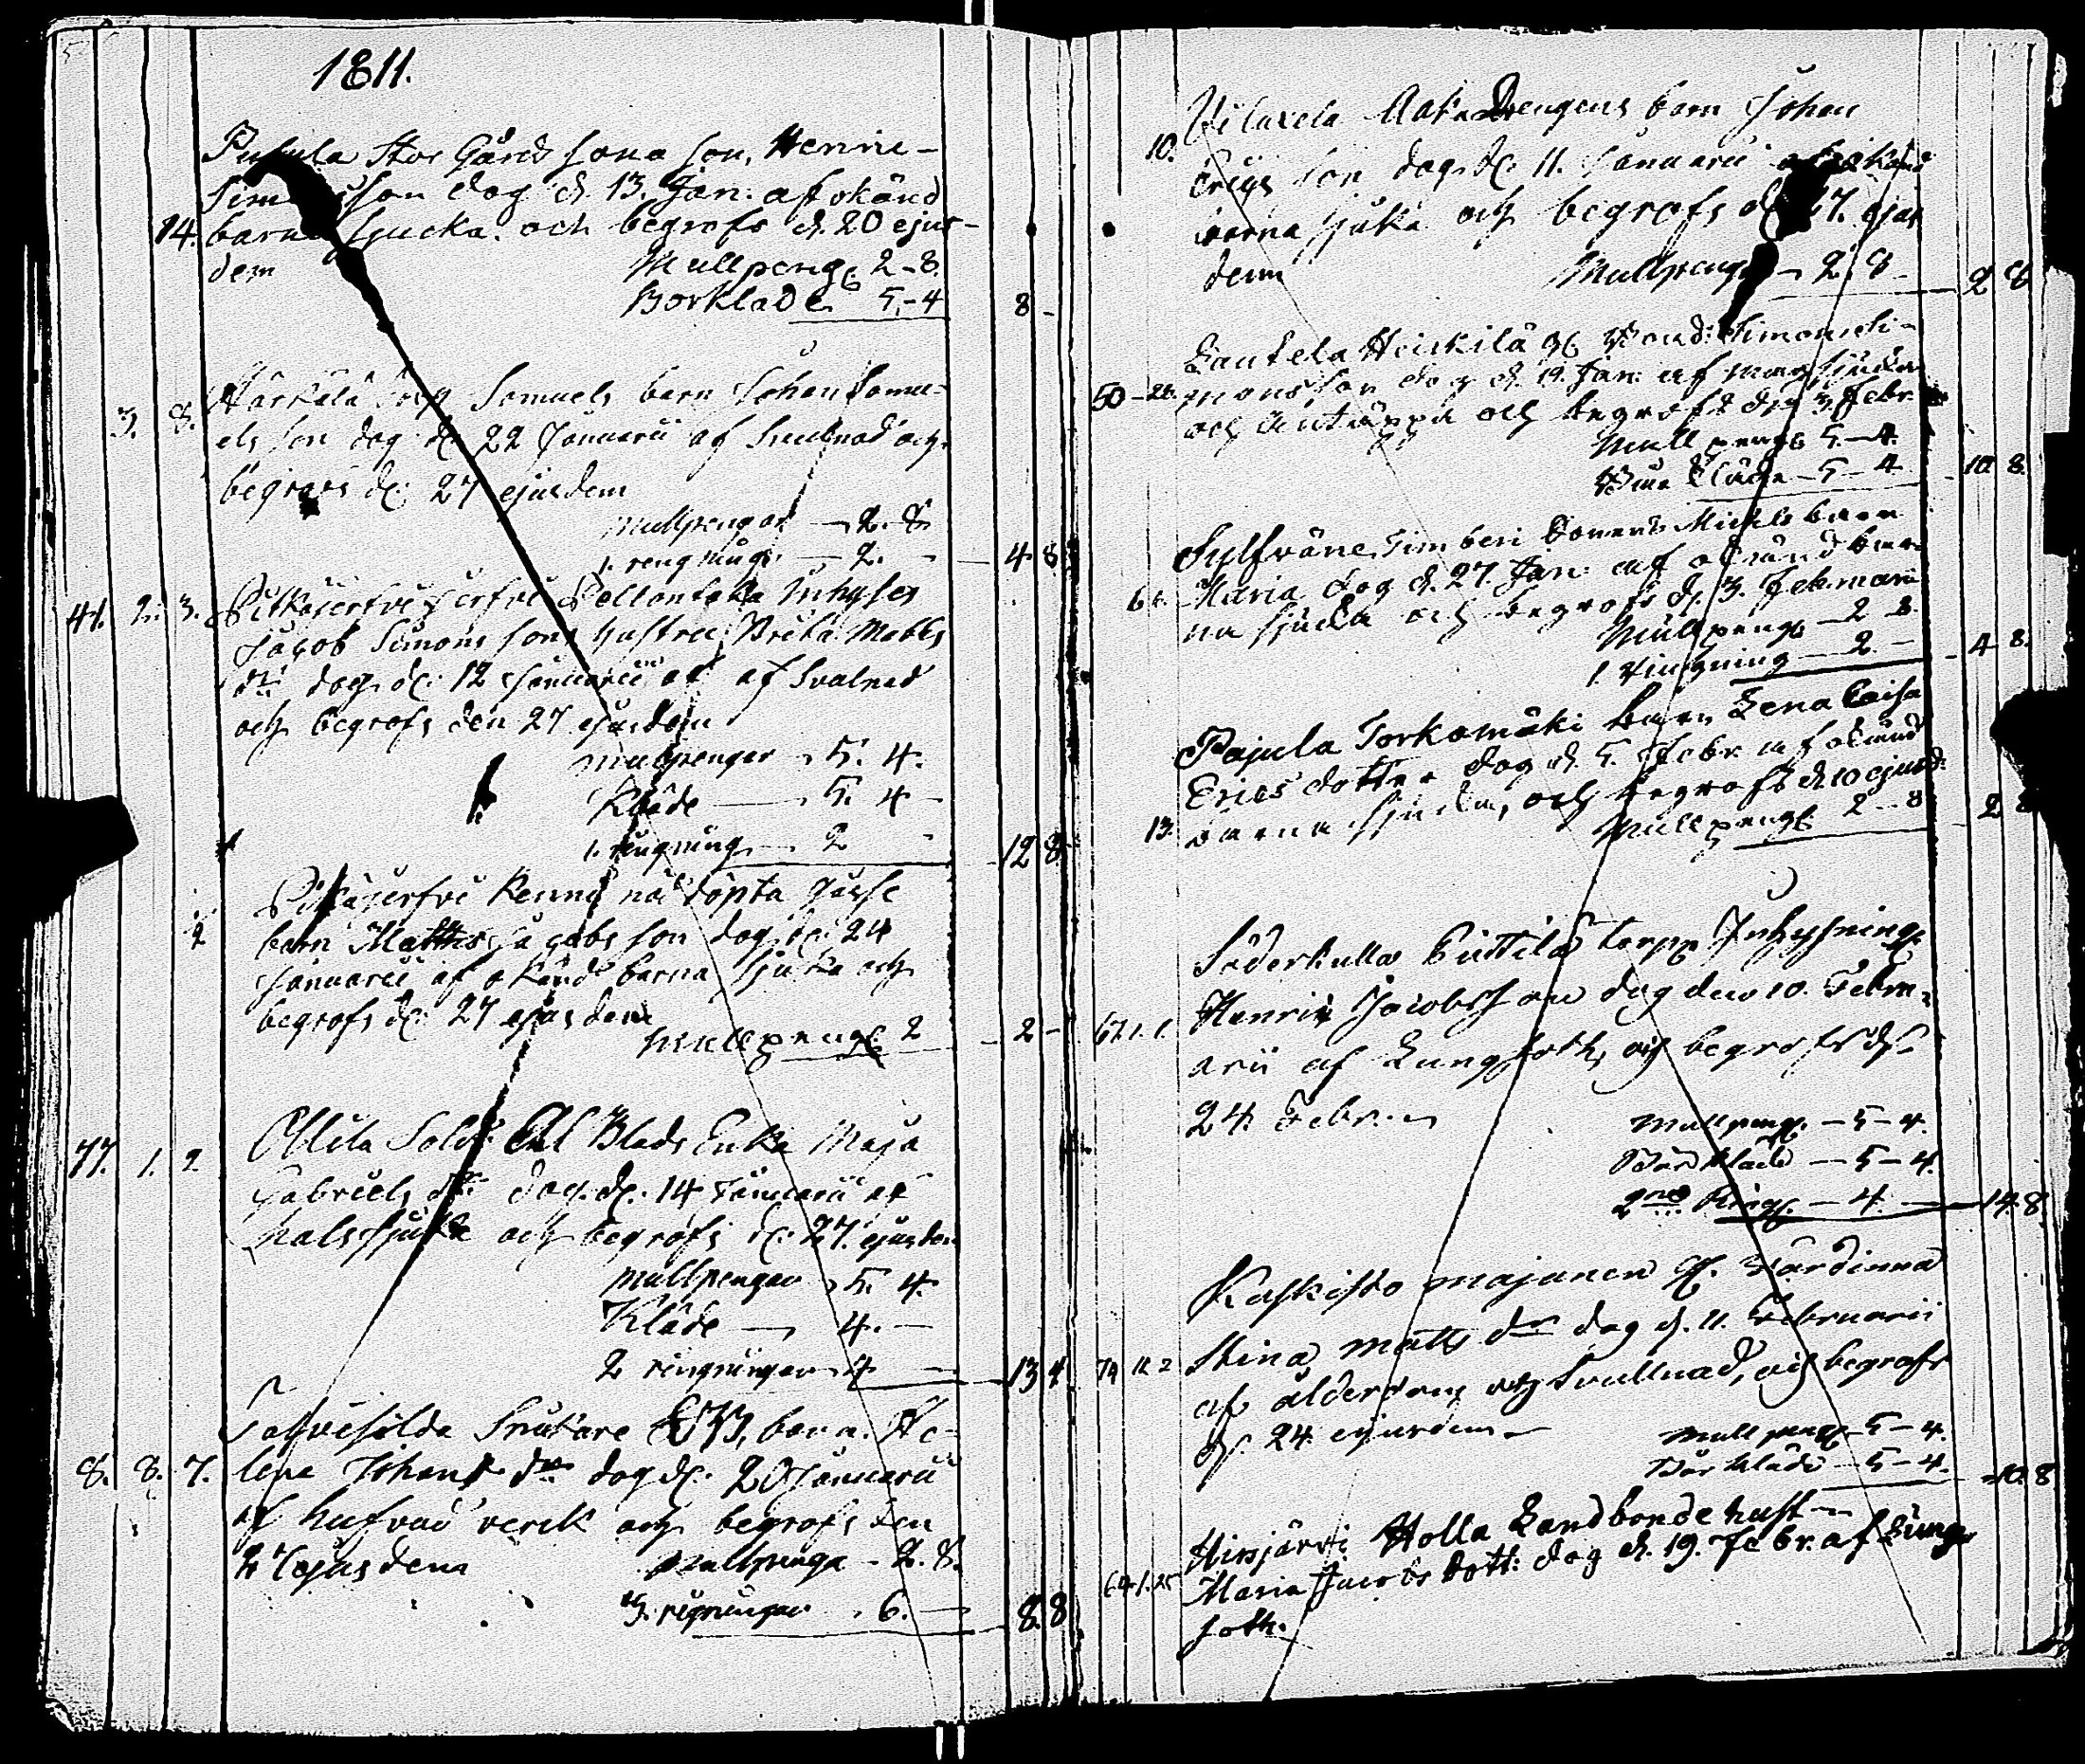 1811.
Pusula Stor Gård sona son, Henric
Sim son dog d. 13. Jan: af okänd
14. barna sjucka. och begrofs d. 20 ejus-
dem Mullpeng 2-8.
Borklade 5.-4 8-
Härkälä Torp Samuels barn Johan Samu-
3. 8. els son dog d. 22 Januarii af Svulnad och
begrovs d. 27 ejusdem
Mullpengar 2. 8.
1. rengning 2. 4 8
41. 2. 3. Pitkäjerfvi Inhyses
Jacob Simons sons hustru Brita Matts
dr dog d. 12 Januarii af Svalnad
och begrofs den 27 ejusdem
mullpengar 5. 4.
Kläde 5. 4
1. rengning 2 12 8
Pitkäjerfvi nöddöpta gosse
2 barn Matths Jacobs son dog d. 24
Januarii af okänd barna sjuka och
begrofs d. 27 ejusdem
mullpeng 2 2 -
77. 1. 2 Ollila Sold: Blads Enka Maja
Gabriels dr dog d. 14 Januarii af
halssjuka och begrofs d. 27. ejusdem
mullpengar 5. 4.
Kläde 4. -
2 ringningar 4 13 4
barn. He-
8. 8. 7. lena Johans dr dog d. 20 Januarii
af hufvud verck och begrofs den
27 ejusdem Mullpenga 2. 8.
3. ringningar 6. 8. 8
Vilaxela Drengens barn Johan
10. Erics son dog d. 11. Januarii af okänd
barna sjuka och begrofs d. 27. ejus
dem Mullpeng 2. 8 2 8
Lautela Heickilä gl. Bond: Simon Si-
50-26. mons son dog d. 19. Jan: af
och och begrofs d. 3. Febr.
Mullpeng 5.-4.
Kläde 5-4 10 8
Michels barn
6 Maria dog d. 27. Jan: af okänd bar-
na sjucka och begrofs d. 3. Februarii
Mullpeng 2 8.
1. Ringning 2 4 8.
Pajula Torkomäki barn Lena Caisa
Erics dotter dog d. 5. Febr. af okänd
13. barna sjucka, och begrofs d. 10 ejusd:
Mullpeng 2-8 2 8
Söderkulla Torp Inhysning
Henric Jacobsson dog den 10. Febru-
67. 1. 1. arii af Lungsoth, och begrofs d.
24 Febr:
Mullpeng. -5-4.
Bår kläde -5-4.
2ne Ring -4- 14. 8
Kaskisto Majanen gl. Värdinna
79 11 2 Stina Matts dr dog d. 11. Februarii
af ålderdom och Svullnad, och begrofs
d. 24 ejusdem
Mullpeng 5-4.
Bår kläde 5-4. 10. 8
Hirsjärvi Holla Landbonde hust-
64. 1. 25 Maria Jacobs dott: dog d. 19. Febr. af Lung-
soth.